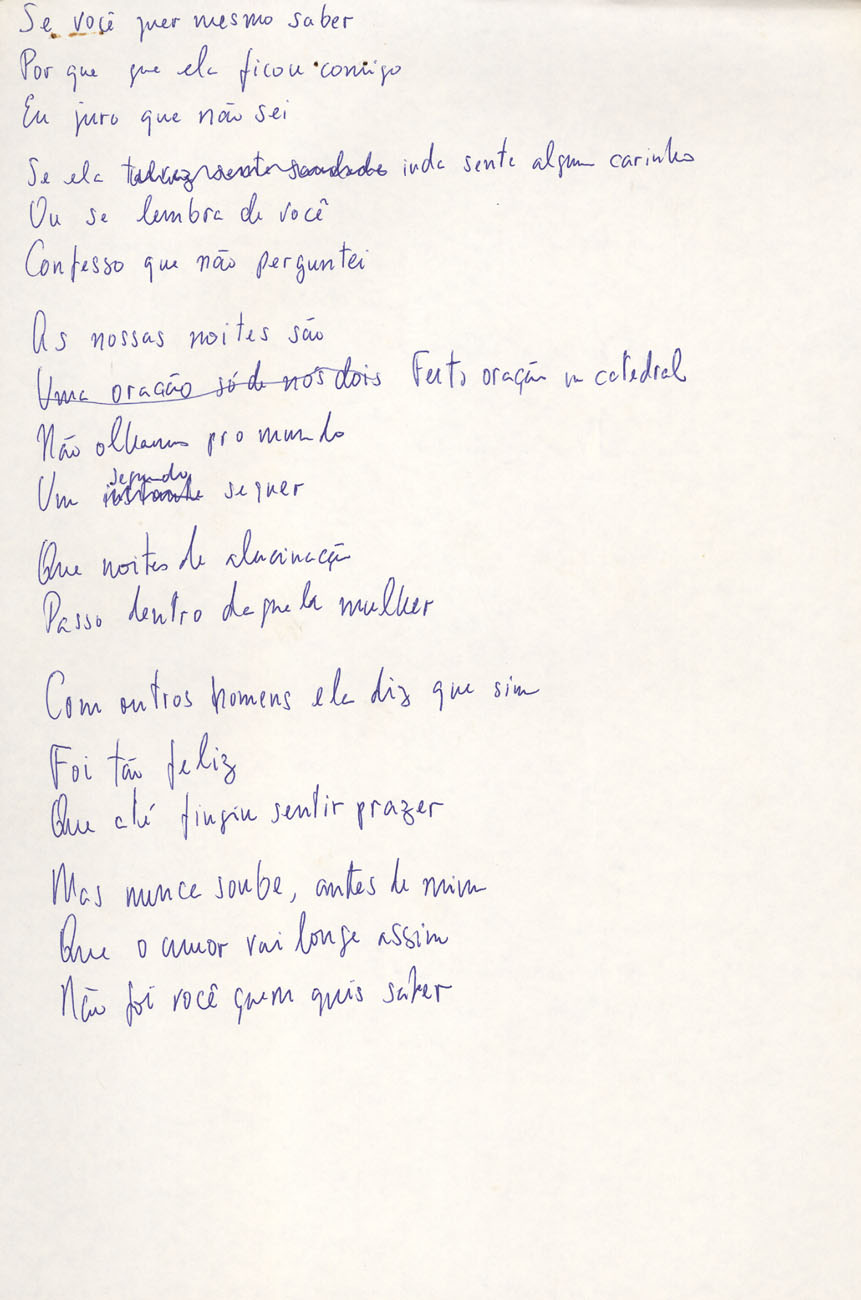 Se você quer mesmo saber
Por que que ela ficou comigo
Eu juro que não sei
Se ela talvez sente saudade inda sente algum carinho
Ou se lembra de você
Confesso que não perguntei
As nossas noites são
Uma oração só de nós dois Feito oração na catedral
Não olhamos pro mundo
segundo
Um instante sequer
Que noites de alucinação
Passo dentro daquela mulher
Com outros homens ela diz que sim
Foi tão feliz
Que até fingiu sentir prazer
Mas nunca soube, antes de mim
Que o amor vai longe assim
Não foi você quem quis saber